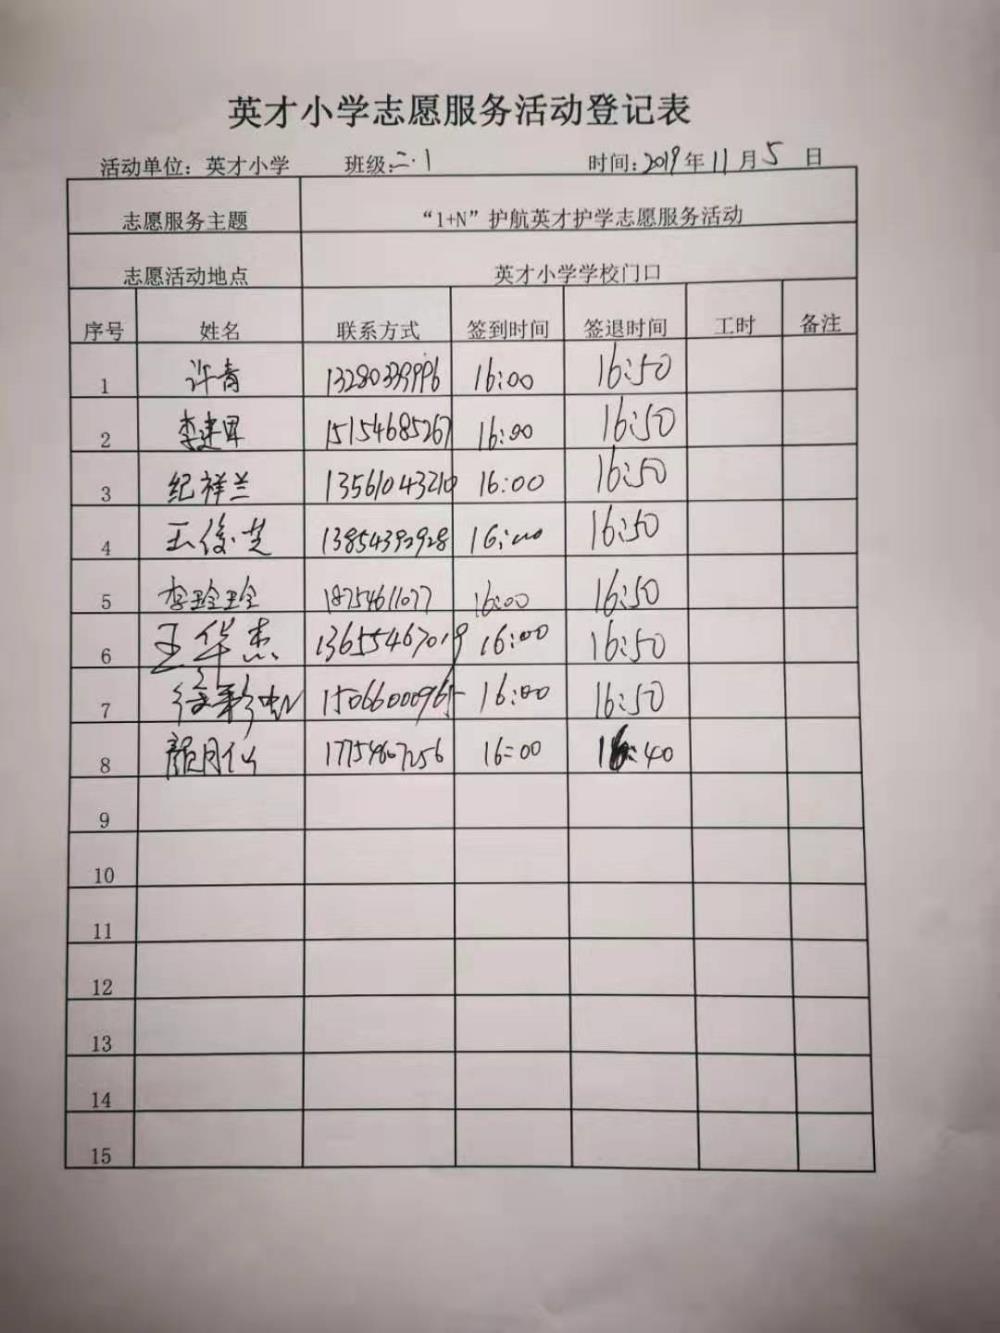 英才小学志愿服务活动登记表
活动单位：英才小学 班级：二.1 时间：2019年11月5日
志愿服务主题 “1+N”护航英才护学志愿服务活动
志愿活动地点 英才小学学校门口
序号 姓名 联系方式 签到时间 签退时间 工时 备注
1 许青 16:00 16:50
2 15154685267 16:00 16:50
3 纪祥兰 13561043210 16:00 16:50
4 王俊芝 13854392928 16:00 16:50
5 李玲玲 16:00 16:50
6 王华杰 13655467019 16:00 16:50
7 15066000965 16:00 16:50
8 颜月仙 17754607256 16:00 16:40
9
10
11
12
13
14
15